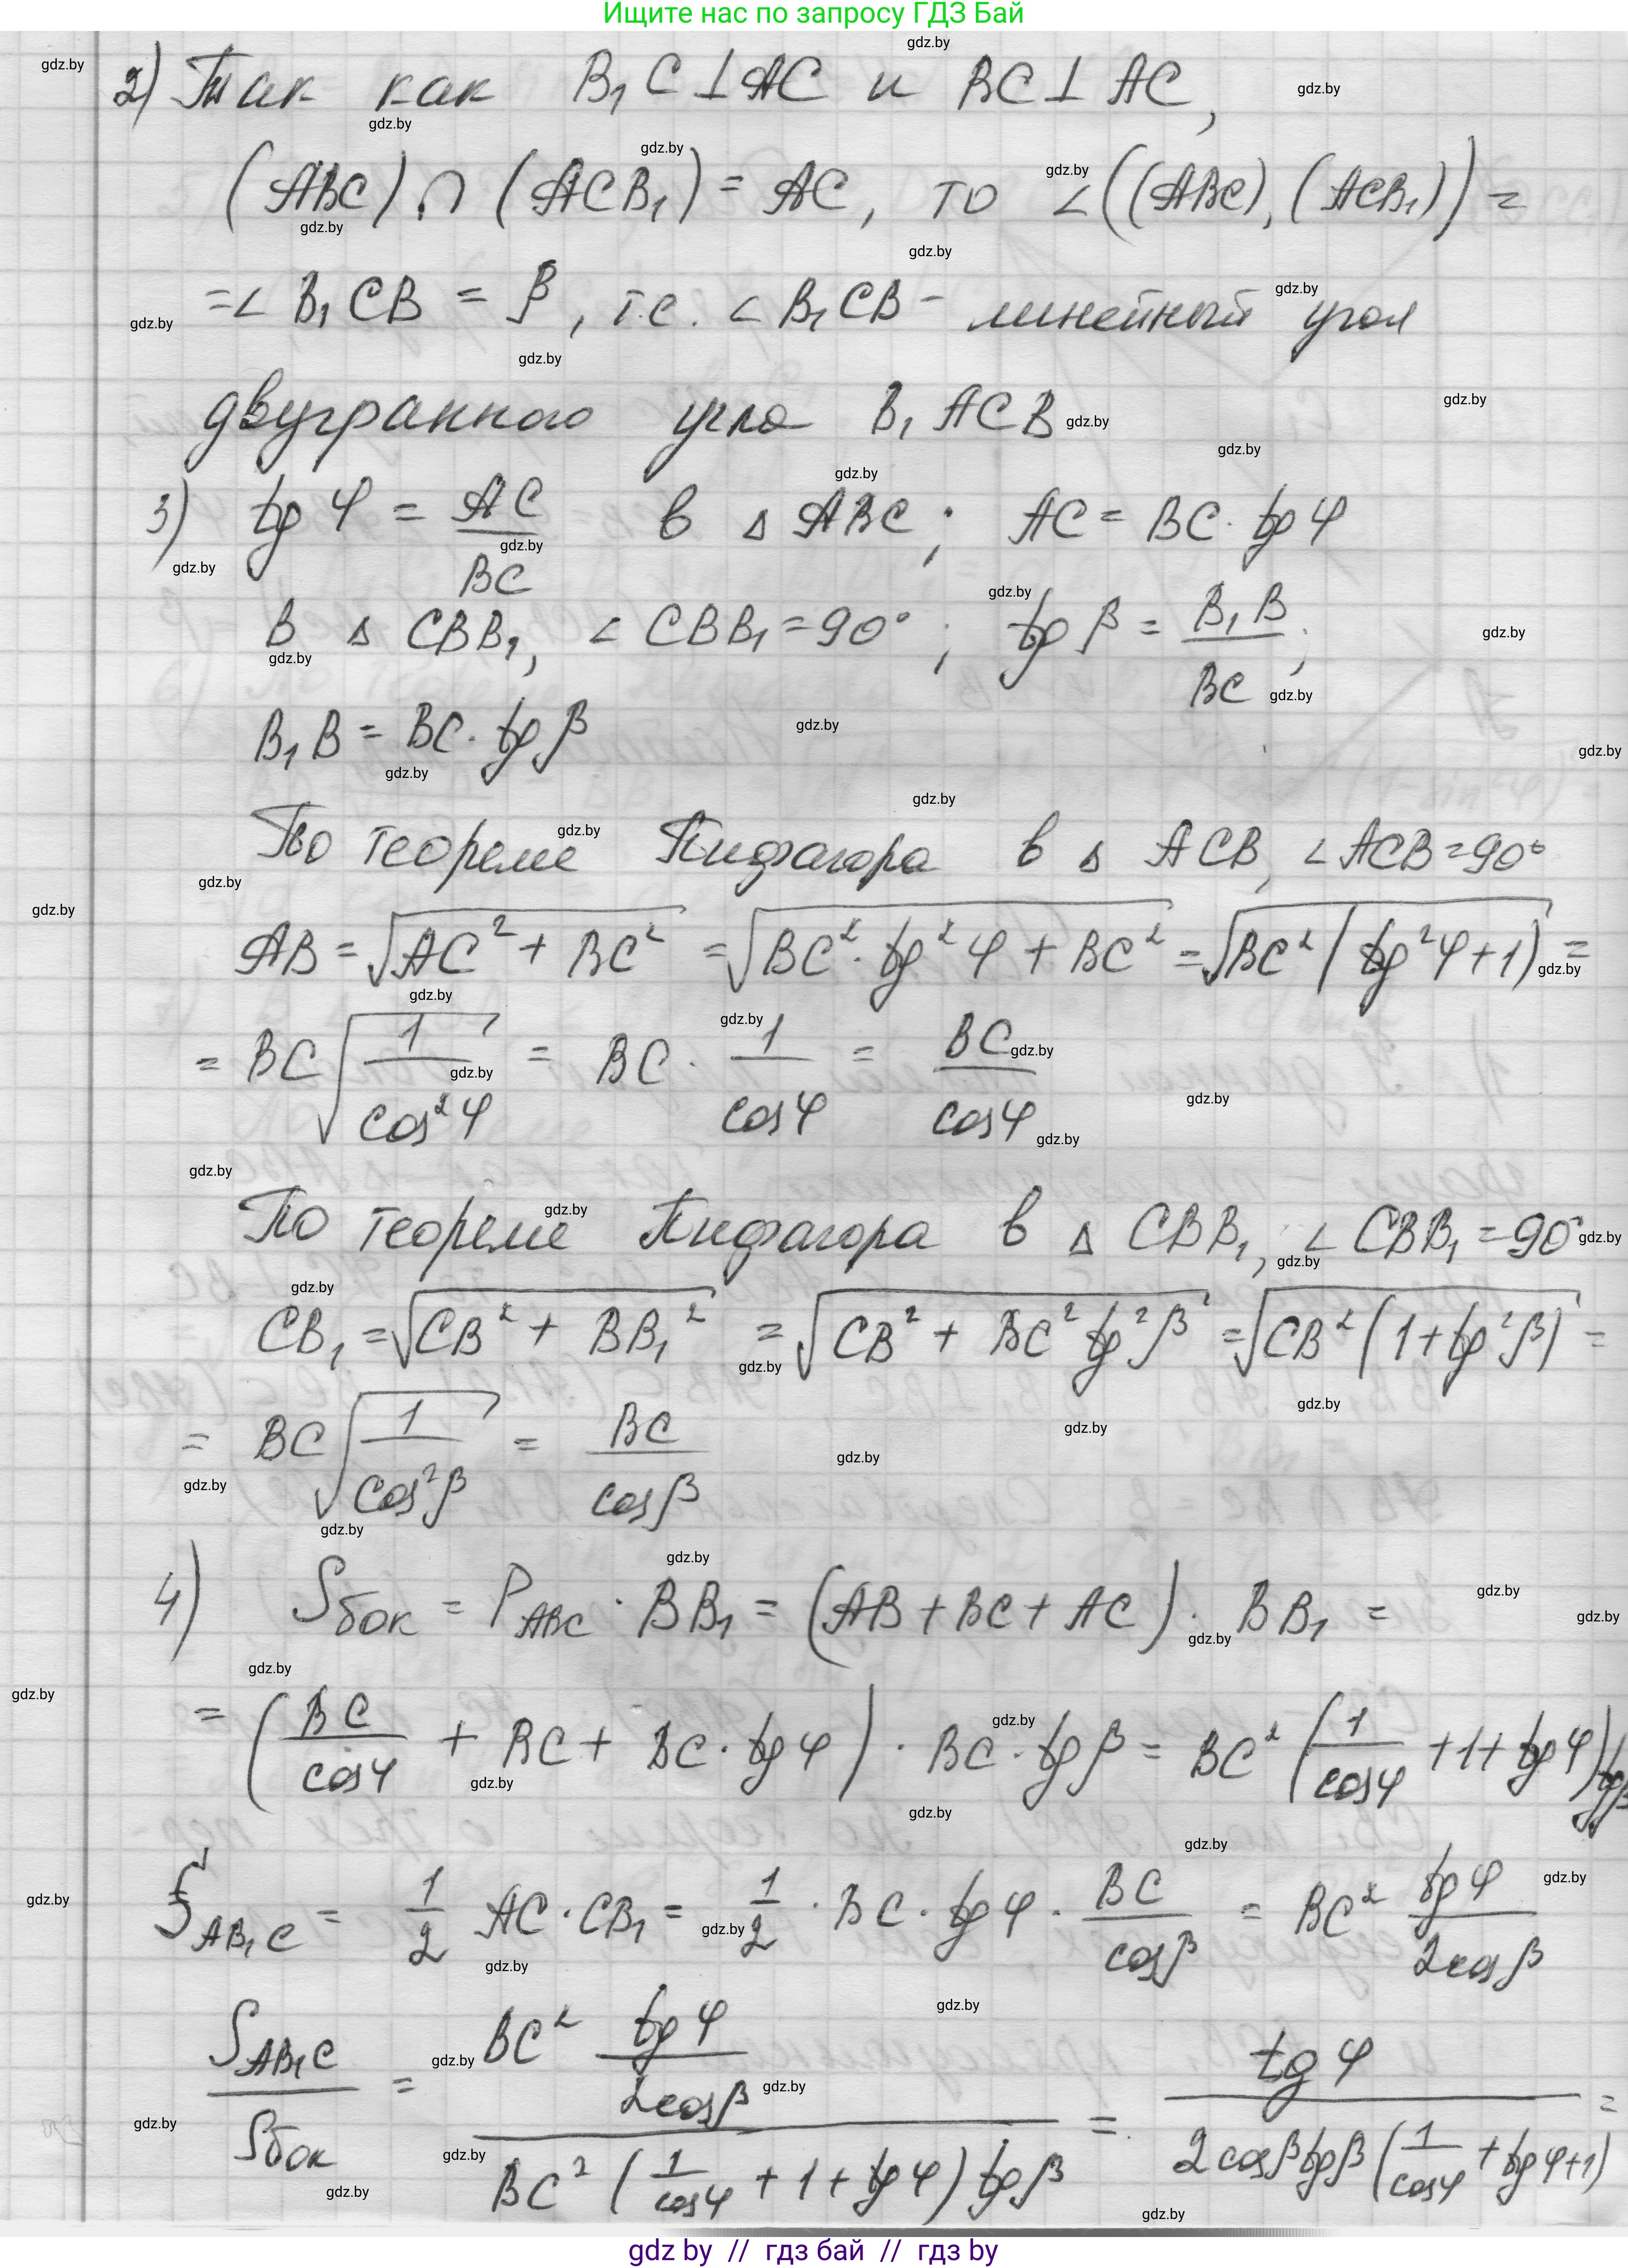 Ищите нас по запросу ГДЗ Бай
2) Так как B₁C ⊥ AC и BC ⊥ AC,
(ABC) ∩ (ACB₁) = AC, то ∠((ABC), (ACB₁)) =
= ∠ B₁CB = β, т.е. ∠ B₁CB – линейный угол
двугранного угла B₁ACB
3) tg φ = AC/BC в Δ ABC; AC = BC · tg φ
В Δ CBB₁, ∠ CBB₁ = 90°; tg β = B₁B/BC;
B₁B = BC · tg β
По теореме Пифагора в Δ ACB, ∠ACB = 90°
AB = √(AC² + BC²) = √(BC² · tg² φ + BC²) = √(BC² (tg² φ + 1)) =
= BC √(1/cos² φ) = BC · 1/cos φ = BC/cos φ
По теореме Пифагора в Δ CBB₁, ∠ CBB₁ = 90°
CB₁ = √(CB² + BB₁²) = √(CB² + BC² tg² β) = √(CB² (1 + tg² β)) =
= BC √(1/cos² β) = BC/cos β
4) Sбок = P_ABC · BB₁ = (AB + BC + AC) · BB₁ =
= (BC/cos φ + BC + BC · tg φ) · BC · tg β = BC² (1/cos φ + 1 + tg φ) tg β
S_AB₁C = 1/2 AC · CB₁ = 1/2 · BC · tg φ · BC/cos β = BC² tg φ/2cos β
S_AB₁C/Sбок = BC² tg φ/2cos β / BC² (1/cos φ + 1 + tg φ) tg β = tg φ / 2 cos β tg β (1/cos φ + tg φ + 1) =
gdz by // гдз бай // гдз by